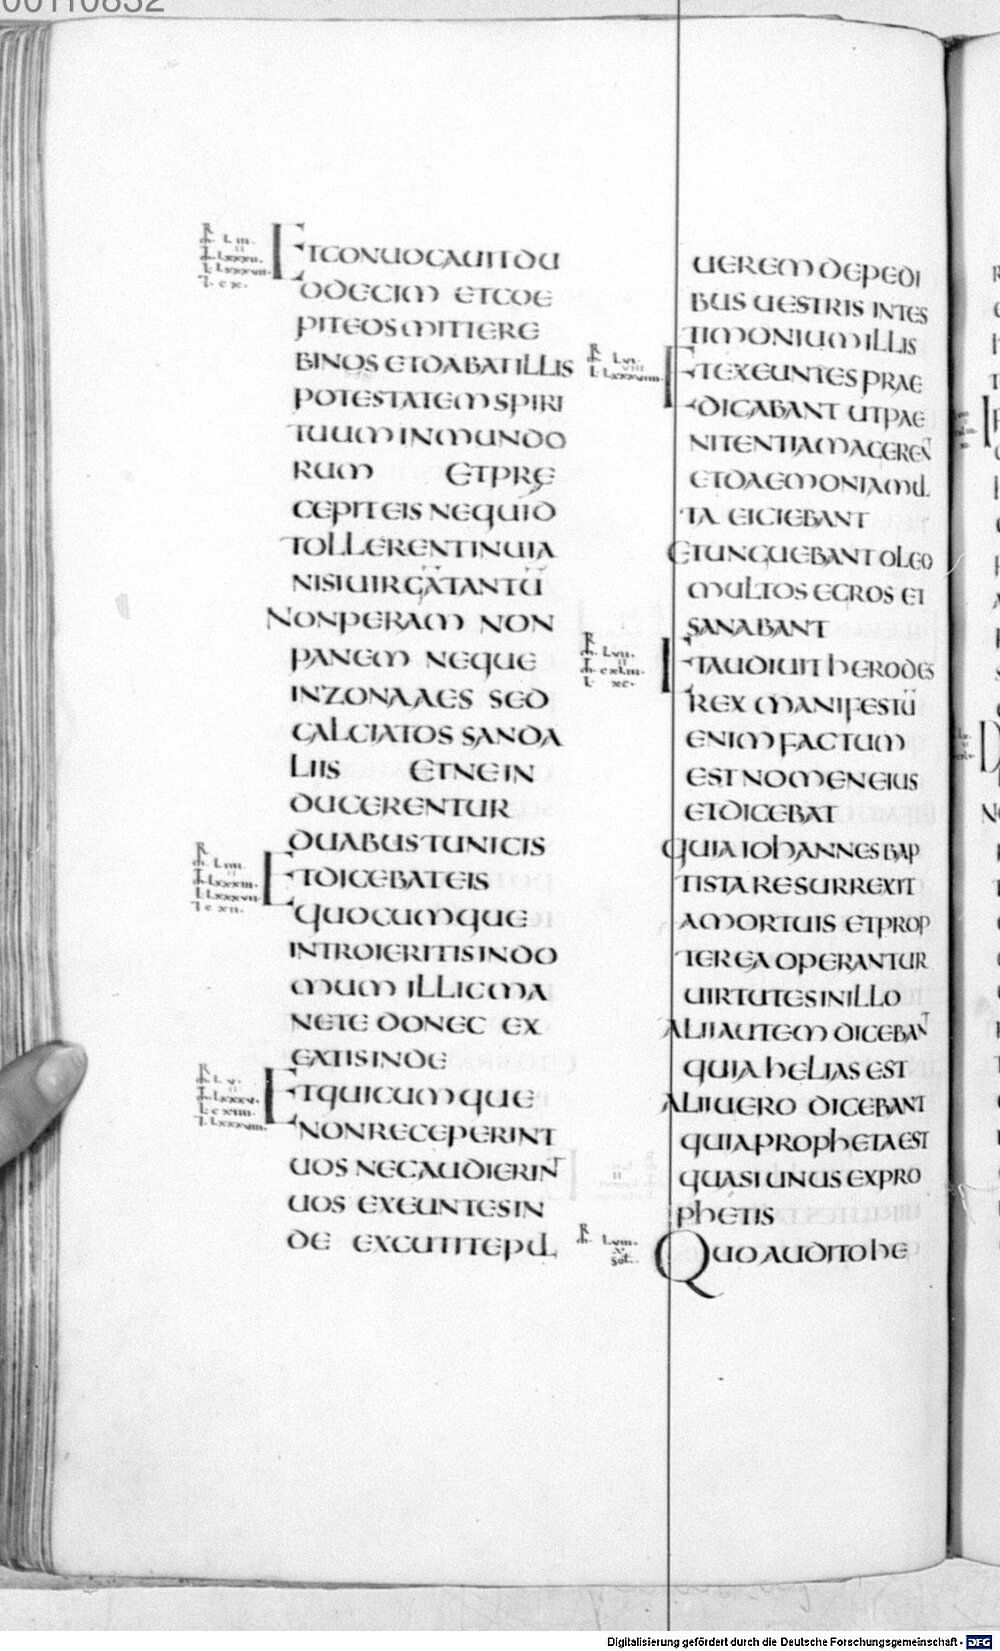 00110832
ETCONUOCAUITDU
ODECIM ETCOE
PITEOSMITTERE
BINOS ETDABATILLIS
POTESTATEMSPIRI
TUUMINMUNDO
RUM ETPRE
CEPITEISNEQUID
TOLLERENTINUIA
NISIUIRGATANTŪ
NONPERAM NON
PANEM NEQUE
INZONAAES SED
CALCIATOS SANDA
LIIS ETNEIN
DUCERENTUR
DUABUSTUNICIS
ETDICEBATEIS
QUOCUMQUE
INTROIERITISINDO
MUM ILLICMA
NETE DONEC EX
EATISINDE
ETQUICUMQUE
NONRECEPERINT
UOS NECAUDIERINT
UOS EXEUNTESIN
DE EXCUTITEPUL
UEREMDEPEDI
BUS UESTRIS INTES
TIMONIUMILLIS
ETEXEUNTESPRAE
DICABANT UTPAE
NITENTIAMACERENT
ETDAEMONIAMUL
TA EICIEBANT
ETUNGUEBANTOLEO
MULTOS EGROS ET
SANABANT
ETAUDIUITHERODES
REX MANIFESTŪ
ENIMFACTUM
ESTNOMENEIUS
ETDICEBAT
QUIAIOHANNESBAP
TISTARESURREXIT
AMORTUIS ETPROP
TEREAOPERANTUR
UIRTUTESINILLO
ALIIAUTEMDICEBANT
QUIAHELIASEST
ALIIUERO DICEBANT
QUIAPROPHETAEST
QUASIUNUSEXPRO
PHETIS
QUOAUDITOHE
Digitalisierung gefördert durch die Deutsche Forschungsgemeinschaft - DFG